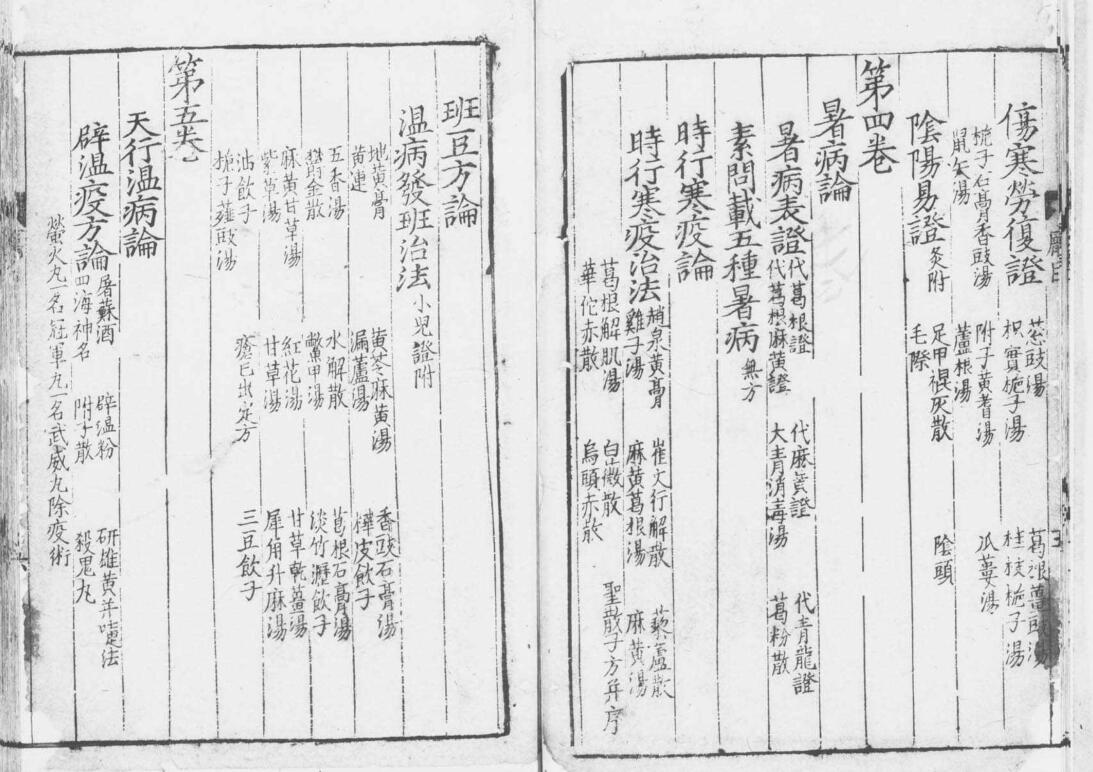 傷寒勞復證
葱豉湯
葛根薑豉湯
枳實梔子湯
桂枝梔子湯
梔子石膏香豉湯
附子黃耆湯
瓜蔞湯
鼠矢湯
蘆根湯
陰陽易證
灸附
足甲裩灰散
陰頭
毛際
第四卷
暑病論
暑病表證
代葛根證
代麻黃證
代青龍證
代葛根麻黃證
大青消毒湯
葛粉散
素問載五種暑病
無方
時行寒疫論
時行寒疫治法
趙泉黃膏
崔文行解散
藜蘆散
雞子湯
麻黃葛根湯
麻黃湯
葛根解肌湯
白薇散
聖散子方并序
華佗赤散
烏頭赤散
班豆方論
温病發班治法
小兒證附
地黃膏
黃芩麻黃湯
香豉石膏湯
黃連
漏蘆湯
樺皮飲子
五香湯
水解散
葛根石膏湯
鬱金散
鱉甲湯
淡竹瀝飲子
麻黃甘草湯
紅花湯
甘草乾薑湯
紫草湯
甘草湯
犀角升麻湯
沾飲子
瘡已出定方
三豆飲子
梔子薤豉湯
第五卷
天行温病論
辟温疫方論
屠蘇酒
辟温粉
研雄黃并嚏法
四海神名
附子散
殺鬼丸
螢火丸名冠軍丸一名武威丸除疫術